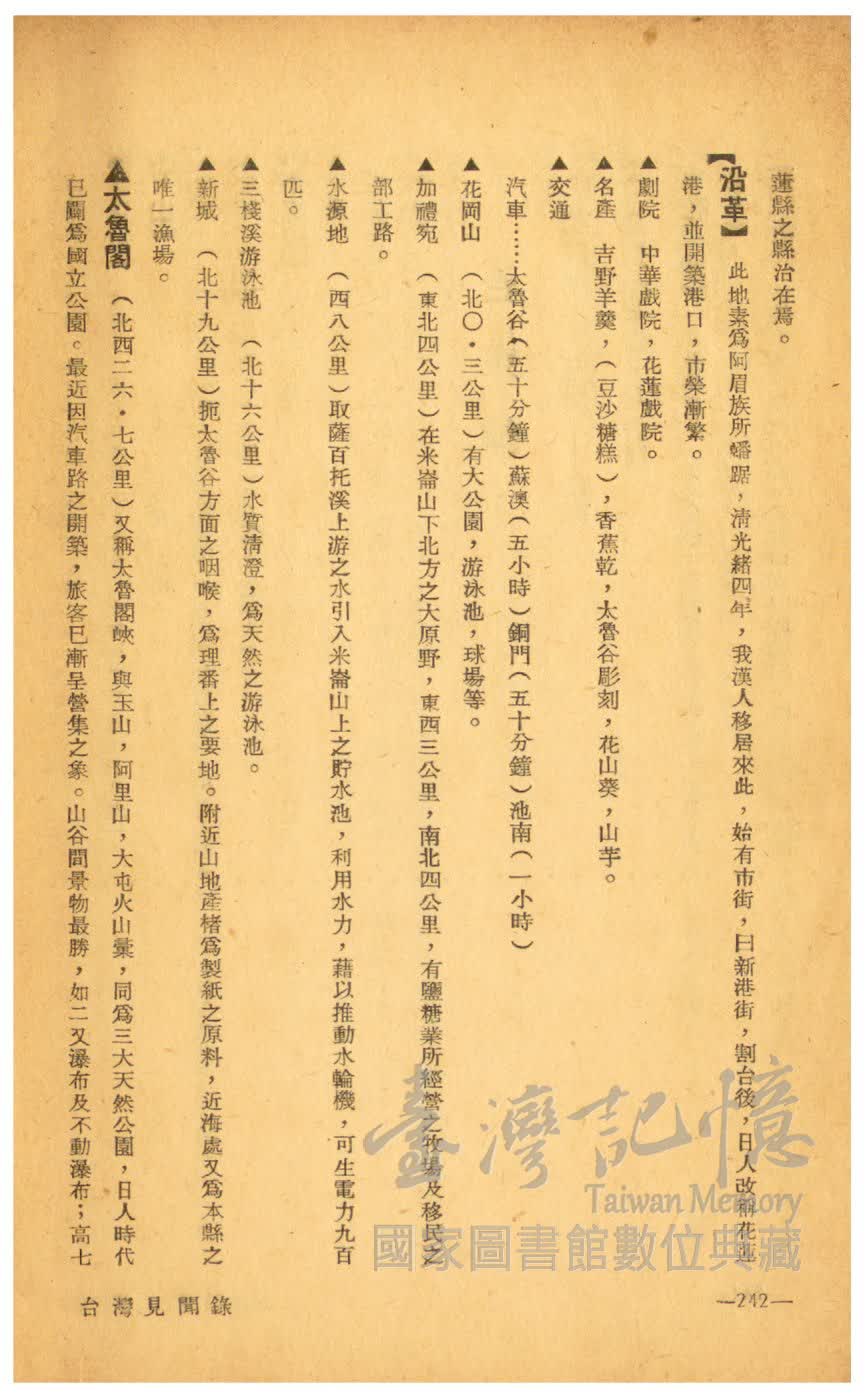 蓮縣之縣治在焉。
【沿革】 此地素爲阿眉族所蟠踞，淸光緒四年，我漢人移居來此，始有市街，曰新港街，割台後，日人改稱花蓮
港，並開築港口，市榮漸繁。
▲劇院 中華戲院，花蓮戲院。
▲名產 吉野羊羹，（豆沙糖糕），香蕉乾，太魯谷彫刻，花山葵，山芋。
▲交通
汽車……太魯谷（五十分鐘）蘇澳（五小時）銅門（五十分鐘）池南（一小時）
▲花岡山 （北〇・三公里）有大公園，游泳池，球場等。
▲加禮宛 （東北四公里）在米崙山下北方之大原野，東西三公里，南北四公里，有鹽糖業所經營之牧場及移民之
部工路。
▲水源地 （西八公里）取薩百托溪上游之水引入米崙山上之貯水池，利用水力，藉以推動水輪機，可生電力九百
匹。
▲三棧溪游泳池 （北十六公里）水質淸澄，爲天然之游泳池。
▲新城 （北十九公里）扼太魯谷方面之咽喉，爲理番上之要地。附近山地產楮爲製紙之原料，近海處又爲本縣之
唯一漁場。
▲太魯閣 （北西二六・七公里）又稱太魯閣峽，與玉山，阿里山，大屯火山彙，同爲三大天然公園，日人時代
已闢爲國立公園。最近因汽車路之開築，旅客已漸呈營集之象。山谷間景物最勝，如二又瀑布及不動瀑布；高七
台灣見聞錄
—242—
臺灣記憶
Taiwan Memory
國家圖書館數位典藏